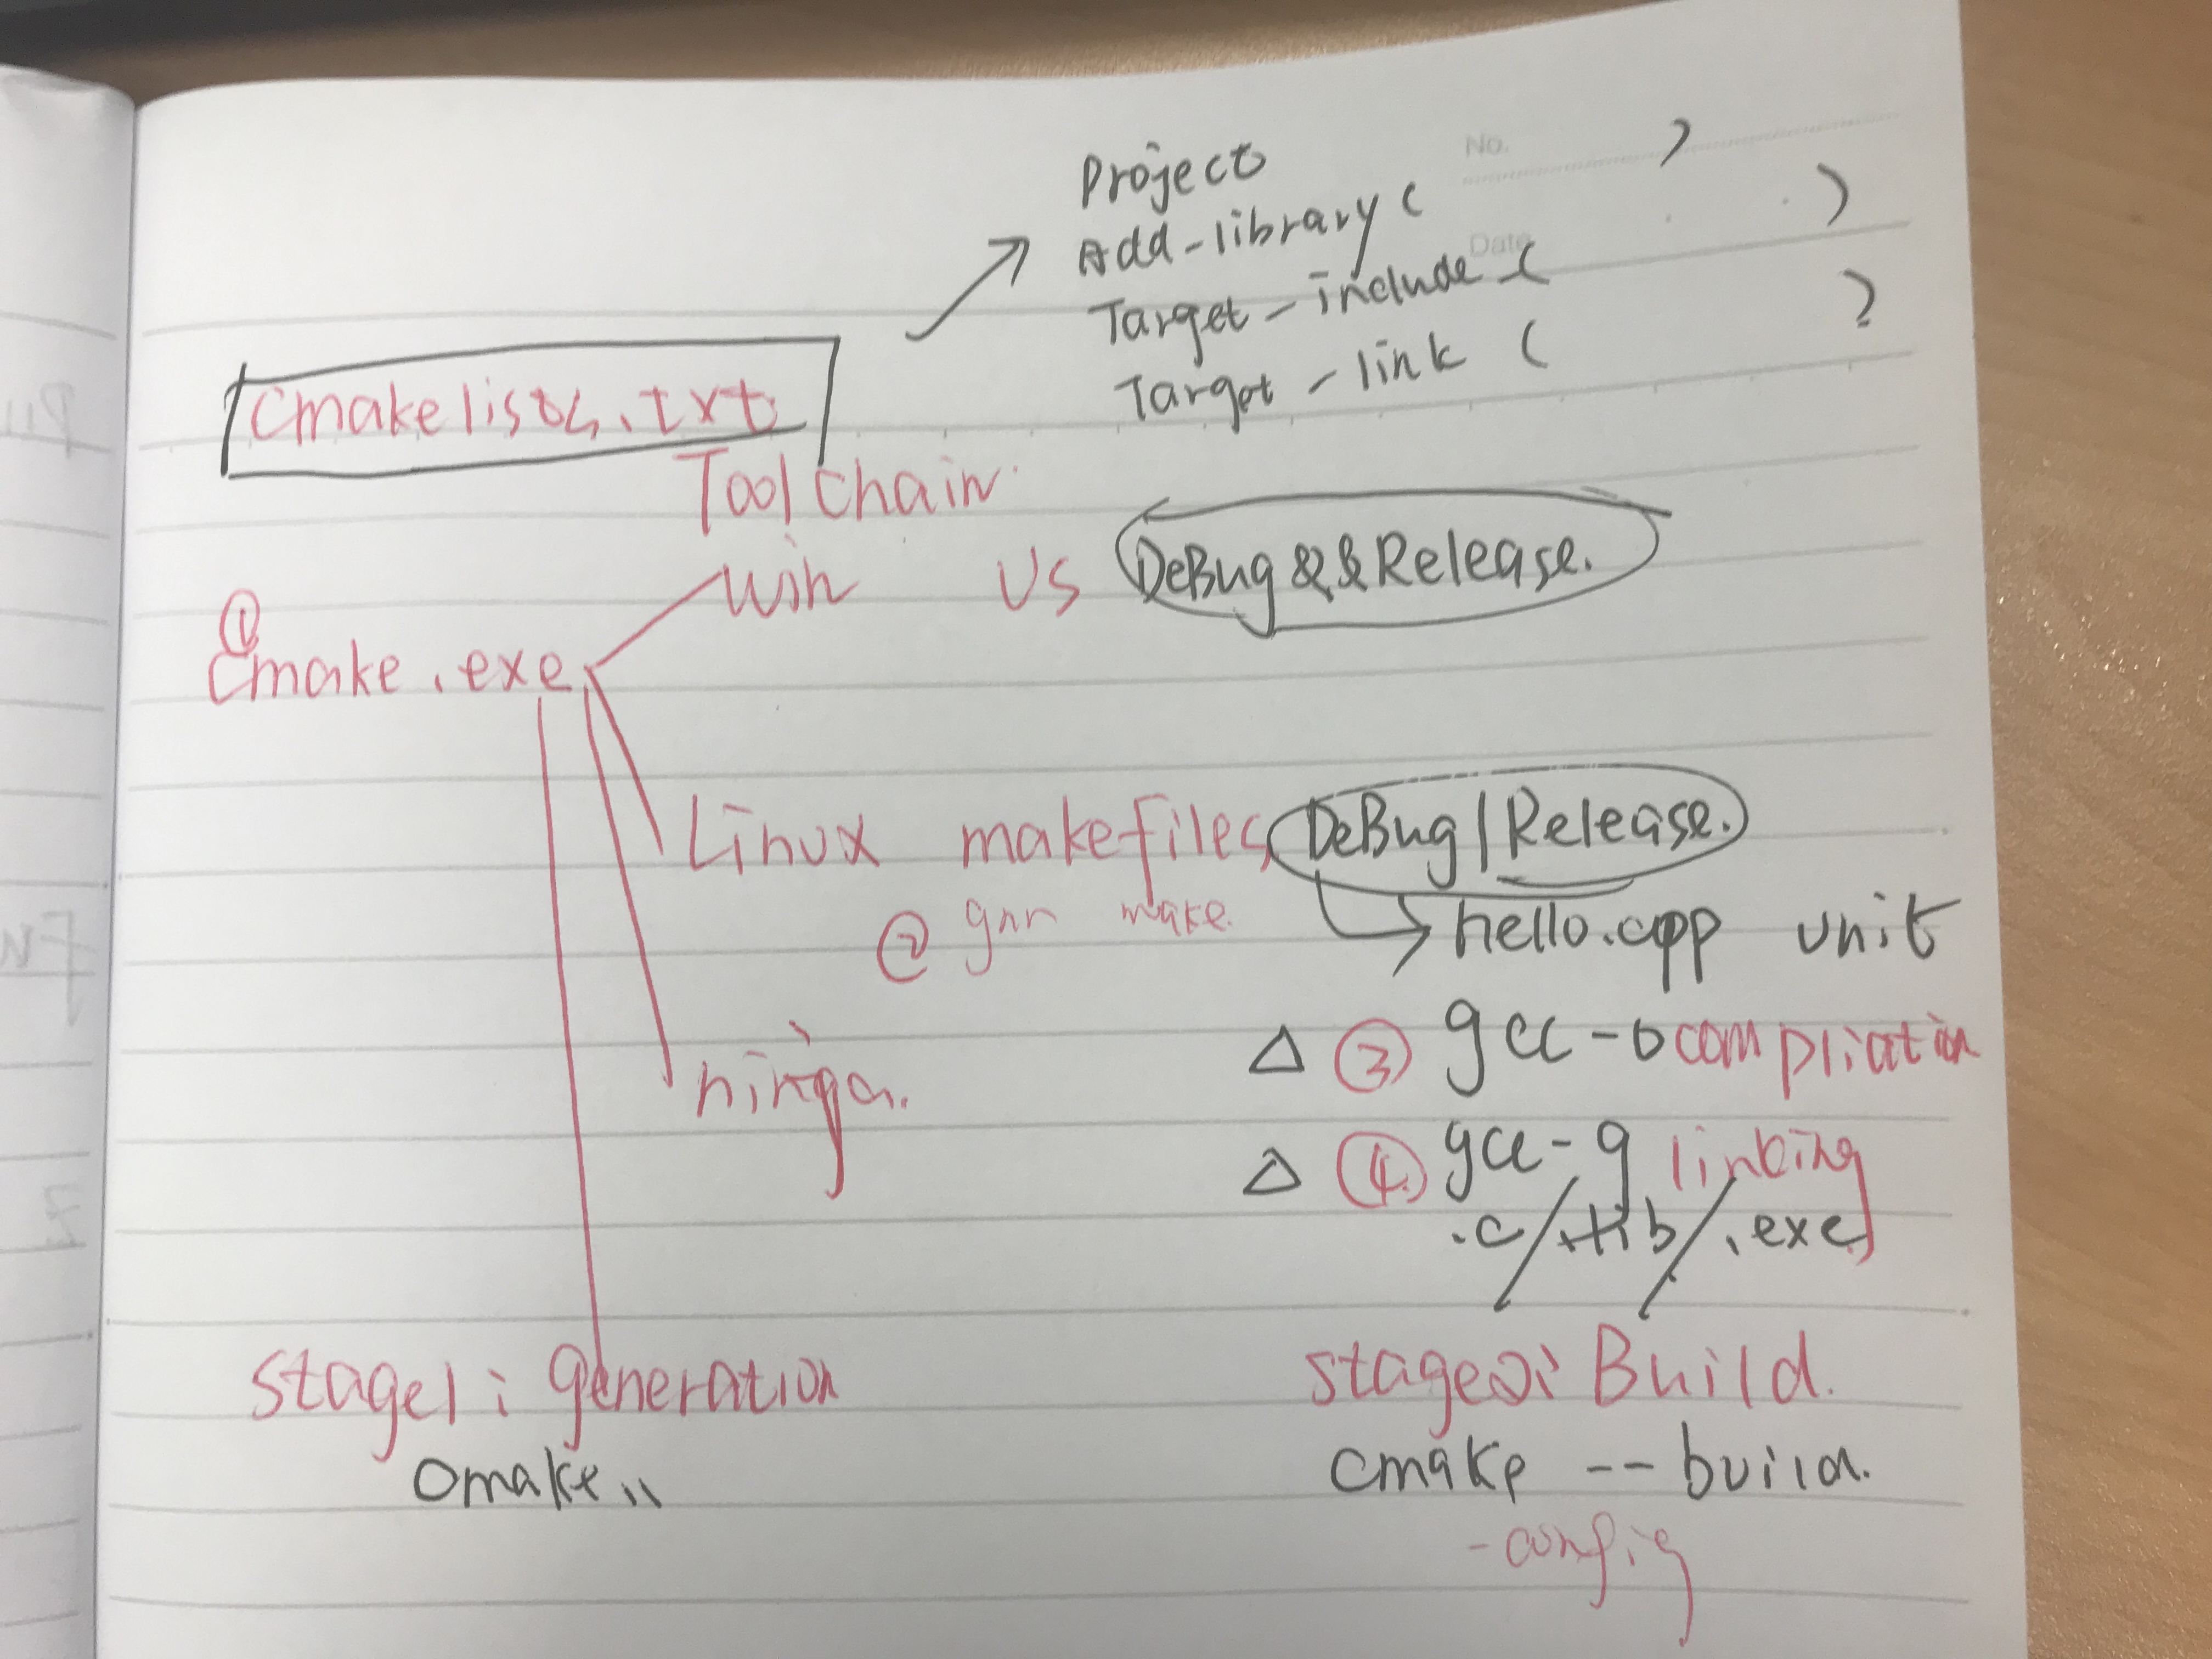 No.
Date
Project
Add-library ( )
Target-include ( )
Target-link ( )
Cmakelists.txt
Tool chain
① Cmake.exe
Win VS DeBug && Release.
Linux makefiles DeBug | Release.
② gnn make
hello.cpp unit
ninga.
△ ③ gcc-b compliation
△ ④ gcc-g linking
.c/+lib/.exe
Stage1: generation
Stage2: Build.
cmake ..
cmake --build.
-config